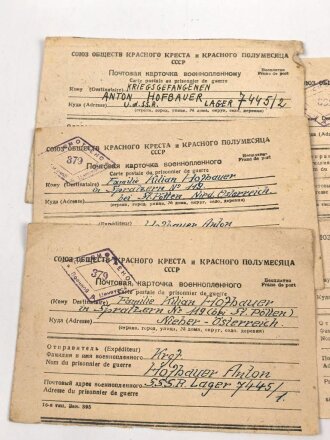 СОЮЗ ОБЩЕСТВ КРАСНОГО КРЕСТА и КРАСНОГО ПОЛУМЕСЯЦА
СССР
Почтовая карточка военнопленному
Carte postale au prisonnier de guerre
Бесплатно
Franc de port
Кому (Destinataire) KRIEGSGEFANGENEN
ANTON HOFBAUER
Куда (Adresse) U.d.S.S.R. LAGER 7445/2
(страна, город, улица, № дома, округ, село, деревня)
СОЮЗ ОБЩЕСТВ КРАСНОГО КРЕСТА и КРАСНОГО ПОЛУМЕСЯЦА
СССР
379
Почтовая карточка военнопленного
Carte postale du prisonnier de guerre
Бесплатно
Franc de port
Кому (Destinataire) Familie Kilian Hofbauer
Куда (Adresse) in Spratzern Nº 119
bei St. Pölten Österreich
(страна, город, улица, № дома, округ, село, деревня)
Hofbauer Anton
СОЮЗ ОБЩЕСТВ КРАСНОГО КРЕСТА и КРАСНОГО ПОЛУМЕСЯЦА
СССР
379
Почтовая карточка военнопленного
Carte postale du prisonnier de guerre
Бесплатно
Franc de port
Кому (Destinataire) Familie Kilian Hofbauer
in Spratzern Nº 119 (bei St. Pölten)
Куда (Adresse) Nieder-Österreich
(страна, город, улица, № дома, округ, село, деревня)
Отправитель (Expéditeur)
Фамилия и имя военнопленного
Nom du prisonnier de guerre
Hofbauer Anton
Почтовый адрес военнопленного SSSR. Lager 7445/1
Adresse du prisonnier de guerre
16-я тип. Зак.